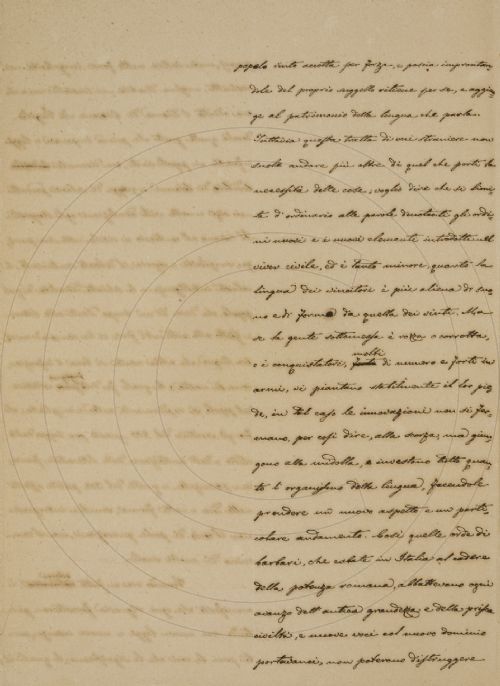 popolo vinto accetta per forza, e poscia improntan-
dole del proprio suggello ritiene per se, e aggiun-
ge al patrimonio della lengua che parla.
Tuttavia questa tratta di voci straniere non
suole andare più altre di quel che porti la
necessità delle cose, voglio dire che si limi-
ta d'ordinario alle parole dinotanti gli ordi-
ni nuovi e i nuovi elementi introdotti nel
viver civile, ed è tanto minore, quanto la
lingua dei vincitori è più aliena di suo-
no e di forma da quella dei vinti. Ma
se la gente sottomessa è rozza o corrotta,
e i conquistatori, molti di numero e forti in
armi, vi piantano stabilmente il lor pie-
de, in tal caso le innovazioni non si fer-
mano, per così dire, alla scorza, ma giun-
gono alla midolla, e investono tutto quan-
to l'organismo della lengua, facendole
prendere un nuovo aspetto e un parti-
colare andamento. Così quelle orde di
barbari, che calate in Italia al cadere
della potenza romana, abbattevano ogni
avanzo dell'antica grandezza e della prisca
civiltà, e nuove voci col nuovo dominio
portavanci, non potevano distruggere